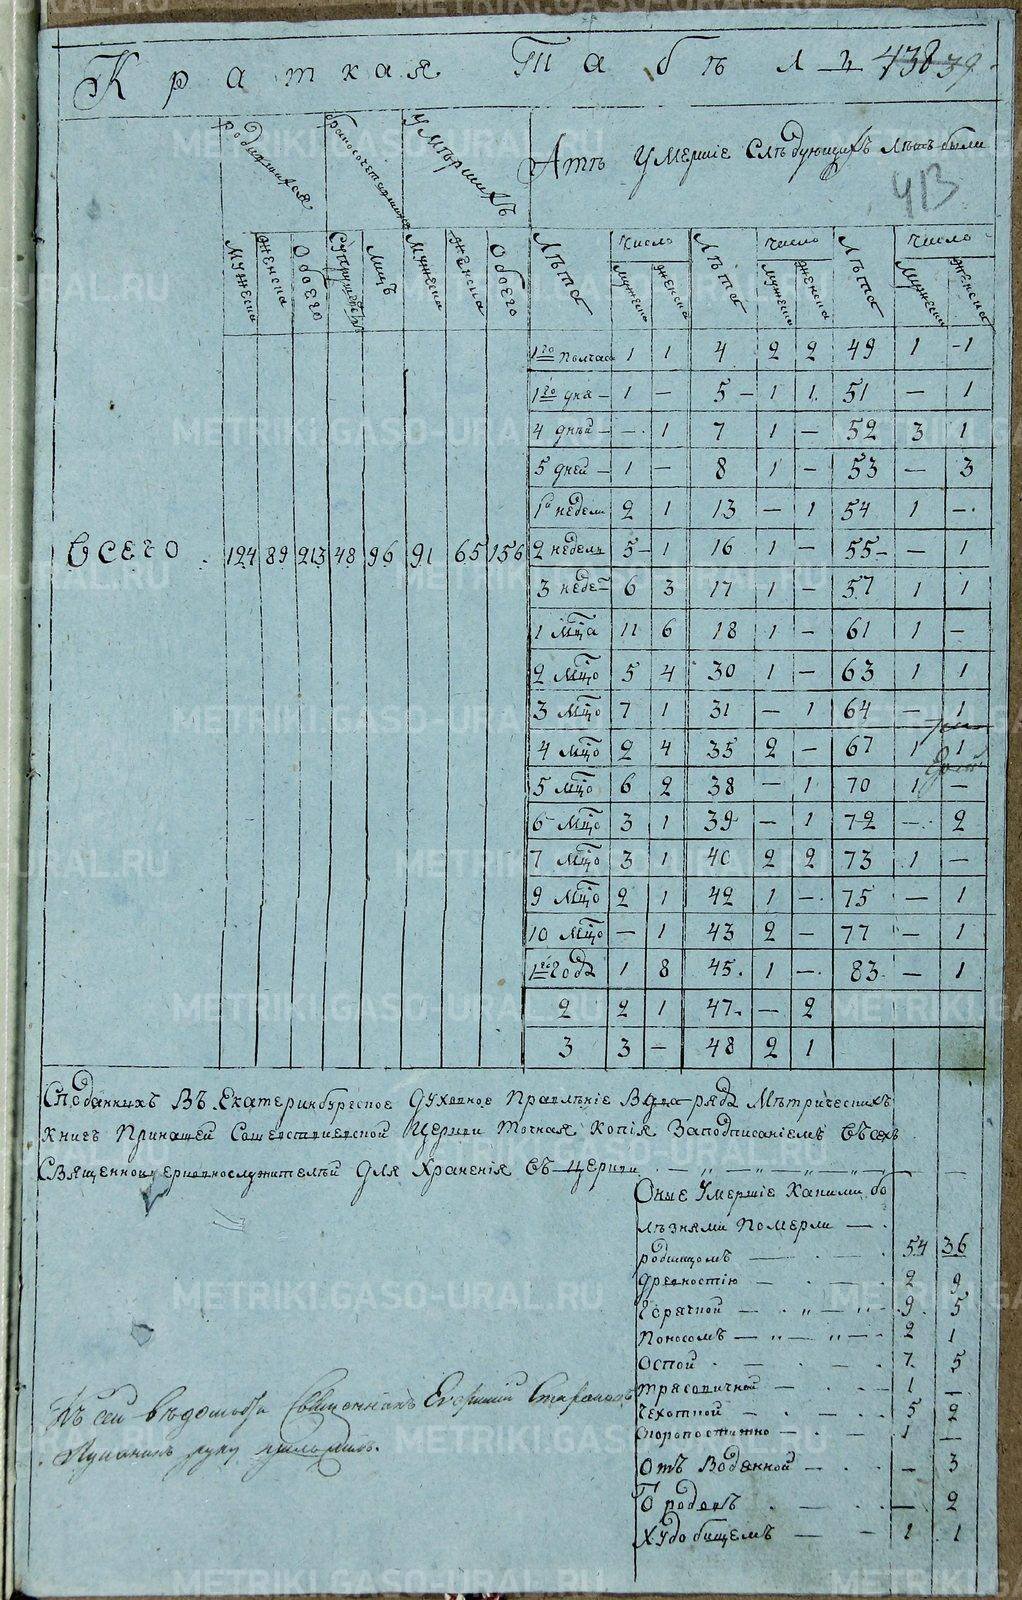 Краткая Табѣль 438 39
413
родившихся бракосочетавшихся умѣршихъ
Лѣтъ умершіе слѣдующихъ лѣтъ были
мужеска женска обоего супружествъ лицъ мужеска женска обоего
Лѣта число Лѣта число Лѣта число
мужеска женска мужеска женска мужеска женска
1го полчаса 1 1 4 2 2 49 1 1
1го дня 1 — 5 1 1 51 — 1
4 дней — 1 7 1 — 52 3 1
5 дней 1 — 8 1 — 53 — 3
1й недели 2 1 13 — 1 54 1 —
Всего 124 89 213 48 96 91 65 156
2 недель 5 1 16 1 — 55 — 1
3 недел 6 3 17 1 — 57 1 1
1 мца 11 6 18 1 — 61 1 —
2 мцо 5 4 30 1 — 63 1 1
3 мцо 7 1 31 — 1 64 — 1
4 мцо 2 4 35 2 — 67 1 1
5 мцо 6 2 38 — 1 70 1 —
6 мцо 3 1 39 — 1 72 — 2
7 мцо 3 1 40 2 2 73 1 —
9 мцо 2 1 42 1 — 75 — 1
10 мцо — 1 43 2 — 77 — 1
1го года 1 8 45 1 — 83 — 1
2 2 1 47 — 2
3 3 — 48 2 1
Споданныхъ Въ Екатеринбургское Духовное Правлѣніе Мѣтрическихъ
книгъ принашей Сошественской Церкви точная копія Заподписаніемъ всехъ
Священноцерковнослужителѣй для храненія въ церкви
Оные умершіе какими бо
лѣзнями померли
родимцомъ 54 36
древностію 2 9
Горячкой 9 5
Поносомъ 2 1
Оспой 7 5
трясавичной 1 —
Чехоткой 5 2
скоропостижно 1 —
Отъ Водянной — 3
Ѿ родовъ — 2
Худобищемъ 1 1
Къ сей вѣдомости Священникъ Евгений
руку приложилъ.
METRIKI.GASO-URAL.RU